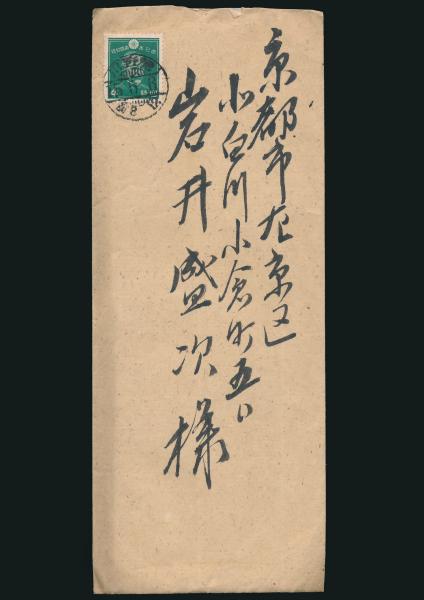 京都市左京区
小白川小倉町五〇
岩井盛次様